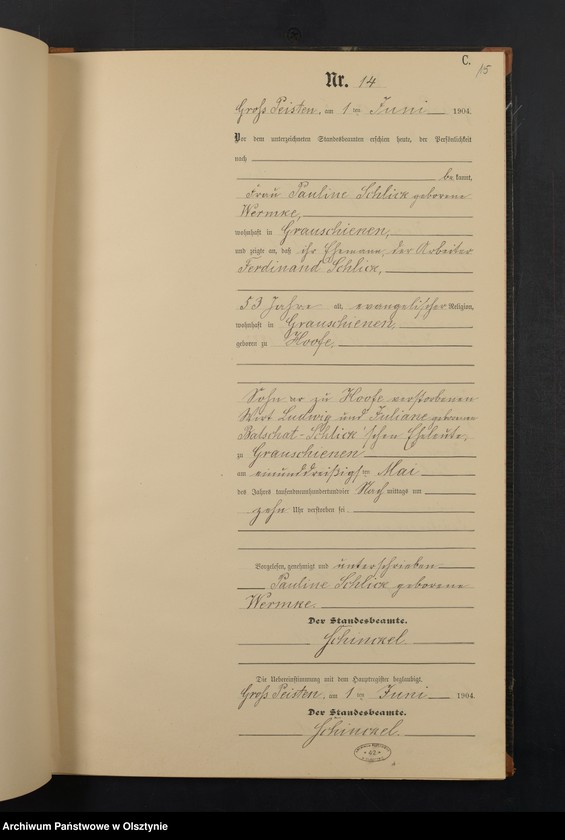 C.
15
Nr. 14
Groß Peisten, am 1 ten Juni 1904.
Vor dem unterzeichneten Standesbeamten erschien heute, der Persönlichkeit
nach
be kannt,
Frau Pauline Schlick geborene
Wermke,
wohnhaft in Grauschienen,
und zeigte an, daß ihr Ehemann, der Arbeiter
Ferdinand Schlick,
53 Jahre alt, evangelischer Religion,
wohnhaft in Grauschienen,
geboren zu Hoofe,
Sohn der zu Hoofe verstorbenen
Wirt Ludwig und Juliane geborenen
Balschat-Schlick'schen Eheleute,
zu Grauschienen
am einunddreißigsten Mai
des Jahres tausendneunhundertundvier Nach mittags um
zehn Uhr verstorben sei.
Vorgelesen, genehmigt und unterschrieben
Pauline Schlick geborene
Wermke.
Der Standesbeamte.
Schinckel
Die Uebereinstimmung mit dem Hauptregister beglaubigt.
Groß Peisten, am 1 ten Juni 1904.
Der Standesbeamte.
Schinckel.
42
Archiwum Państwowe w Olsztynie